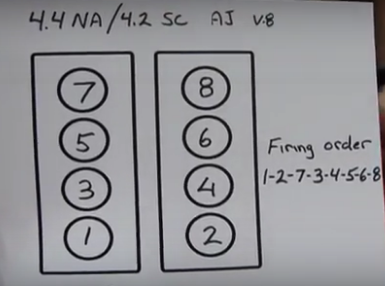 4.4 NA/4.2 SC AJ V.8
7 8
5 6
3 4
1 2
Firing order
1-2-7-3-4-5-6-8